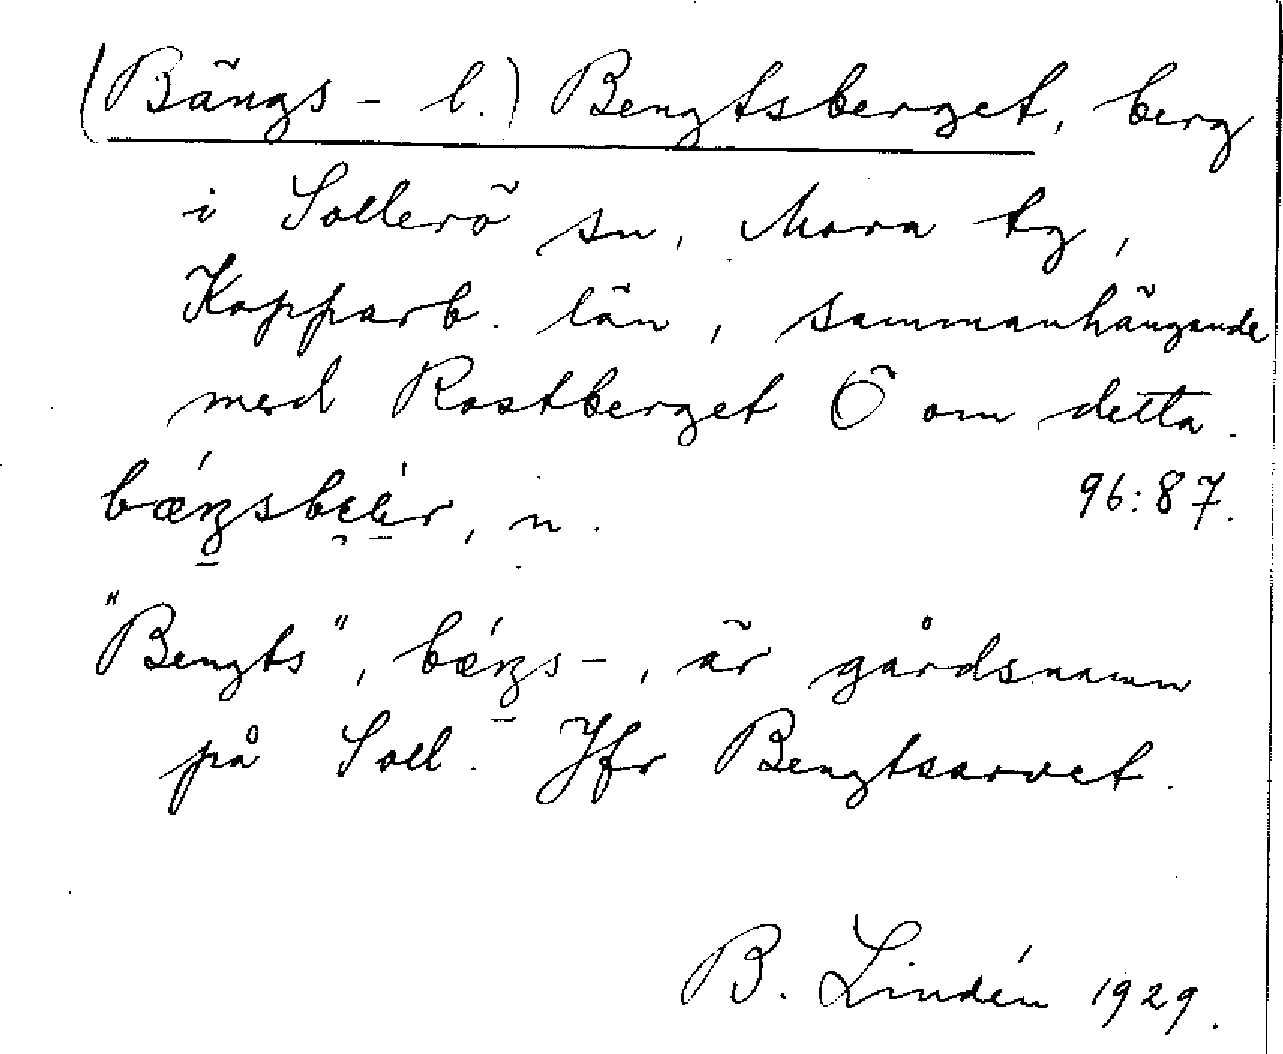 (Bängs- b.) Bengtsberget, berg
i Sollerö sn, Mora tg,
Kopparb. län, sammanhängande
med Rostberget Ö om detta.
96:87.
"Bengts", är gårdsnamn
på Soll. Jfr Bengtsarvet.
B. Lindén 1929.